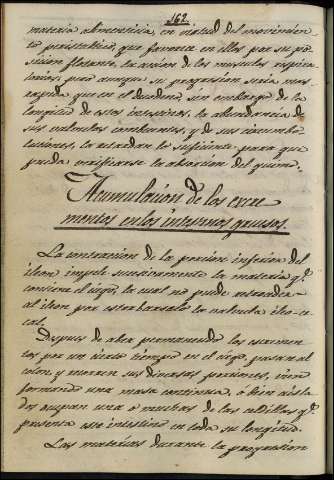 162.
materia alimenticia, en virtud del movimien-
to peristaltico, que favorece en ellos por su po-
sicion flotante, la accion de los musculos respira-
torios; pero aunque su progresion seria mas
rapida que en el duodeno, sin embargo de la
longitud de estos intestinos, la abundancia de
sus valvulas conniventes, y de sus circumbo-
luciones, la retardan lo suficiente para que
pueda verificarse la absorcion del quimo.
Acumulacion de los excre-
mentos en los intestinos gruesos.
La contraccion de la porcion inferior del
ileon impele sucesivamente la materia q.e
contiene el ciego, la cual no puede retroceder
al ileon por estorbarselo la valvula ileo-ce-
cal.
Despues de aber permanecido los escremen-
tos por un cierto tiempo en el ciego, pasan al
colon, y recorren sus diversas porciones, bien
formando una masa continua, ó bien aisla-
dos ocupan una o muchas de las celdillas q.e
presenta este intestino en toda su longitud.
Las materias durante la progresion